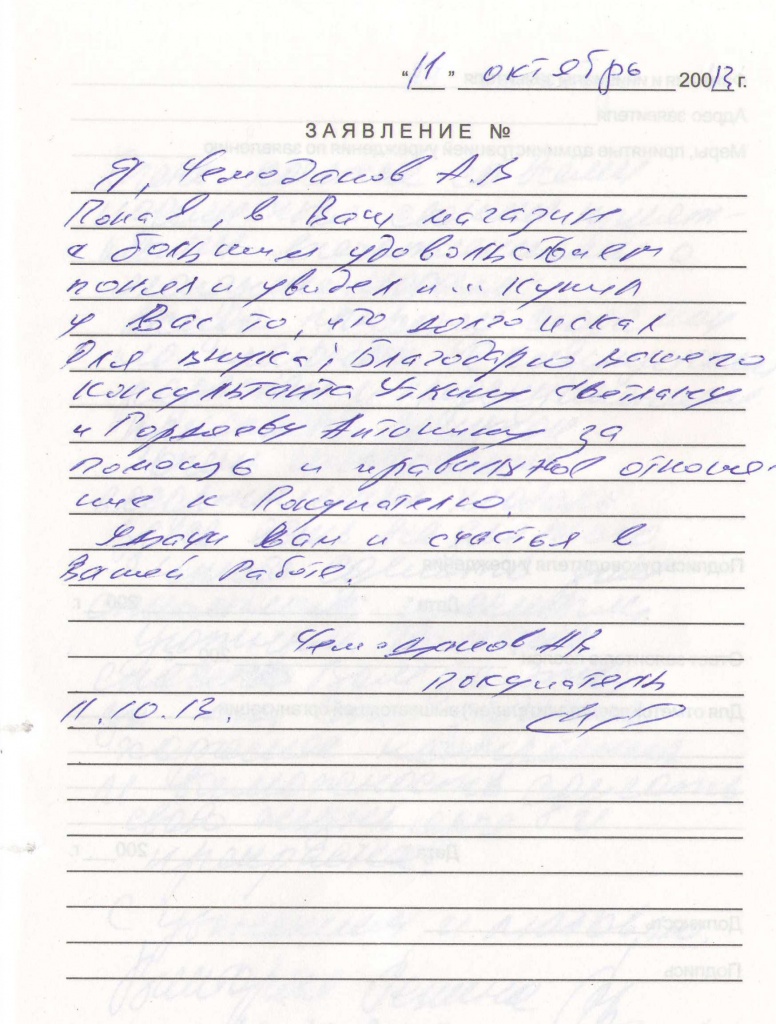 "11" октябрь 20013 г.
ЗАЯВЛЕНИЕ №
Я, Чемоданов А.В
Попал, в Ваш магазин
с большим удовольствием
пошел и увидел и купил
у Вас то, что долго искал
Для внука; Благодарю вашего
Консультанта Уткину Светлану
и Гордееву Антонину за
помощь и правильное отноше-
ние к Покупателю.
Удачи Вам и счастья в
Вашей Работе.
Чемоданов А.В
покупатель
11.10.13.